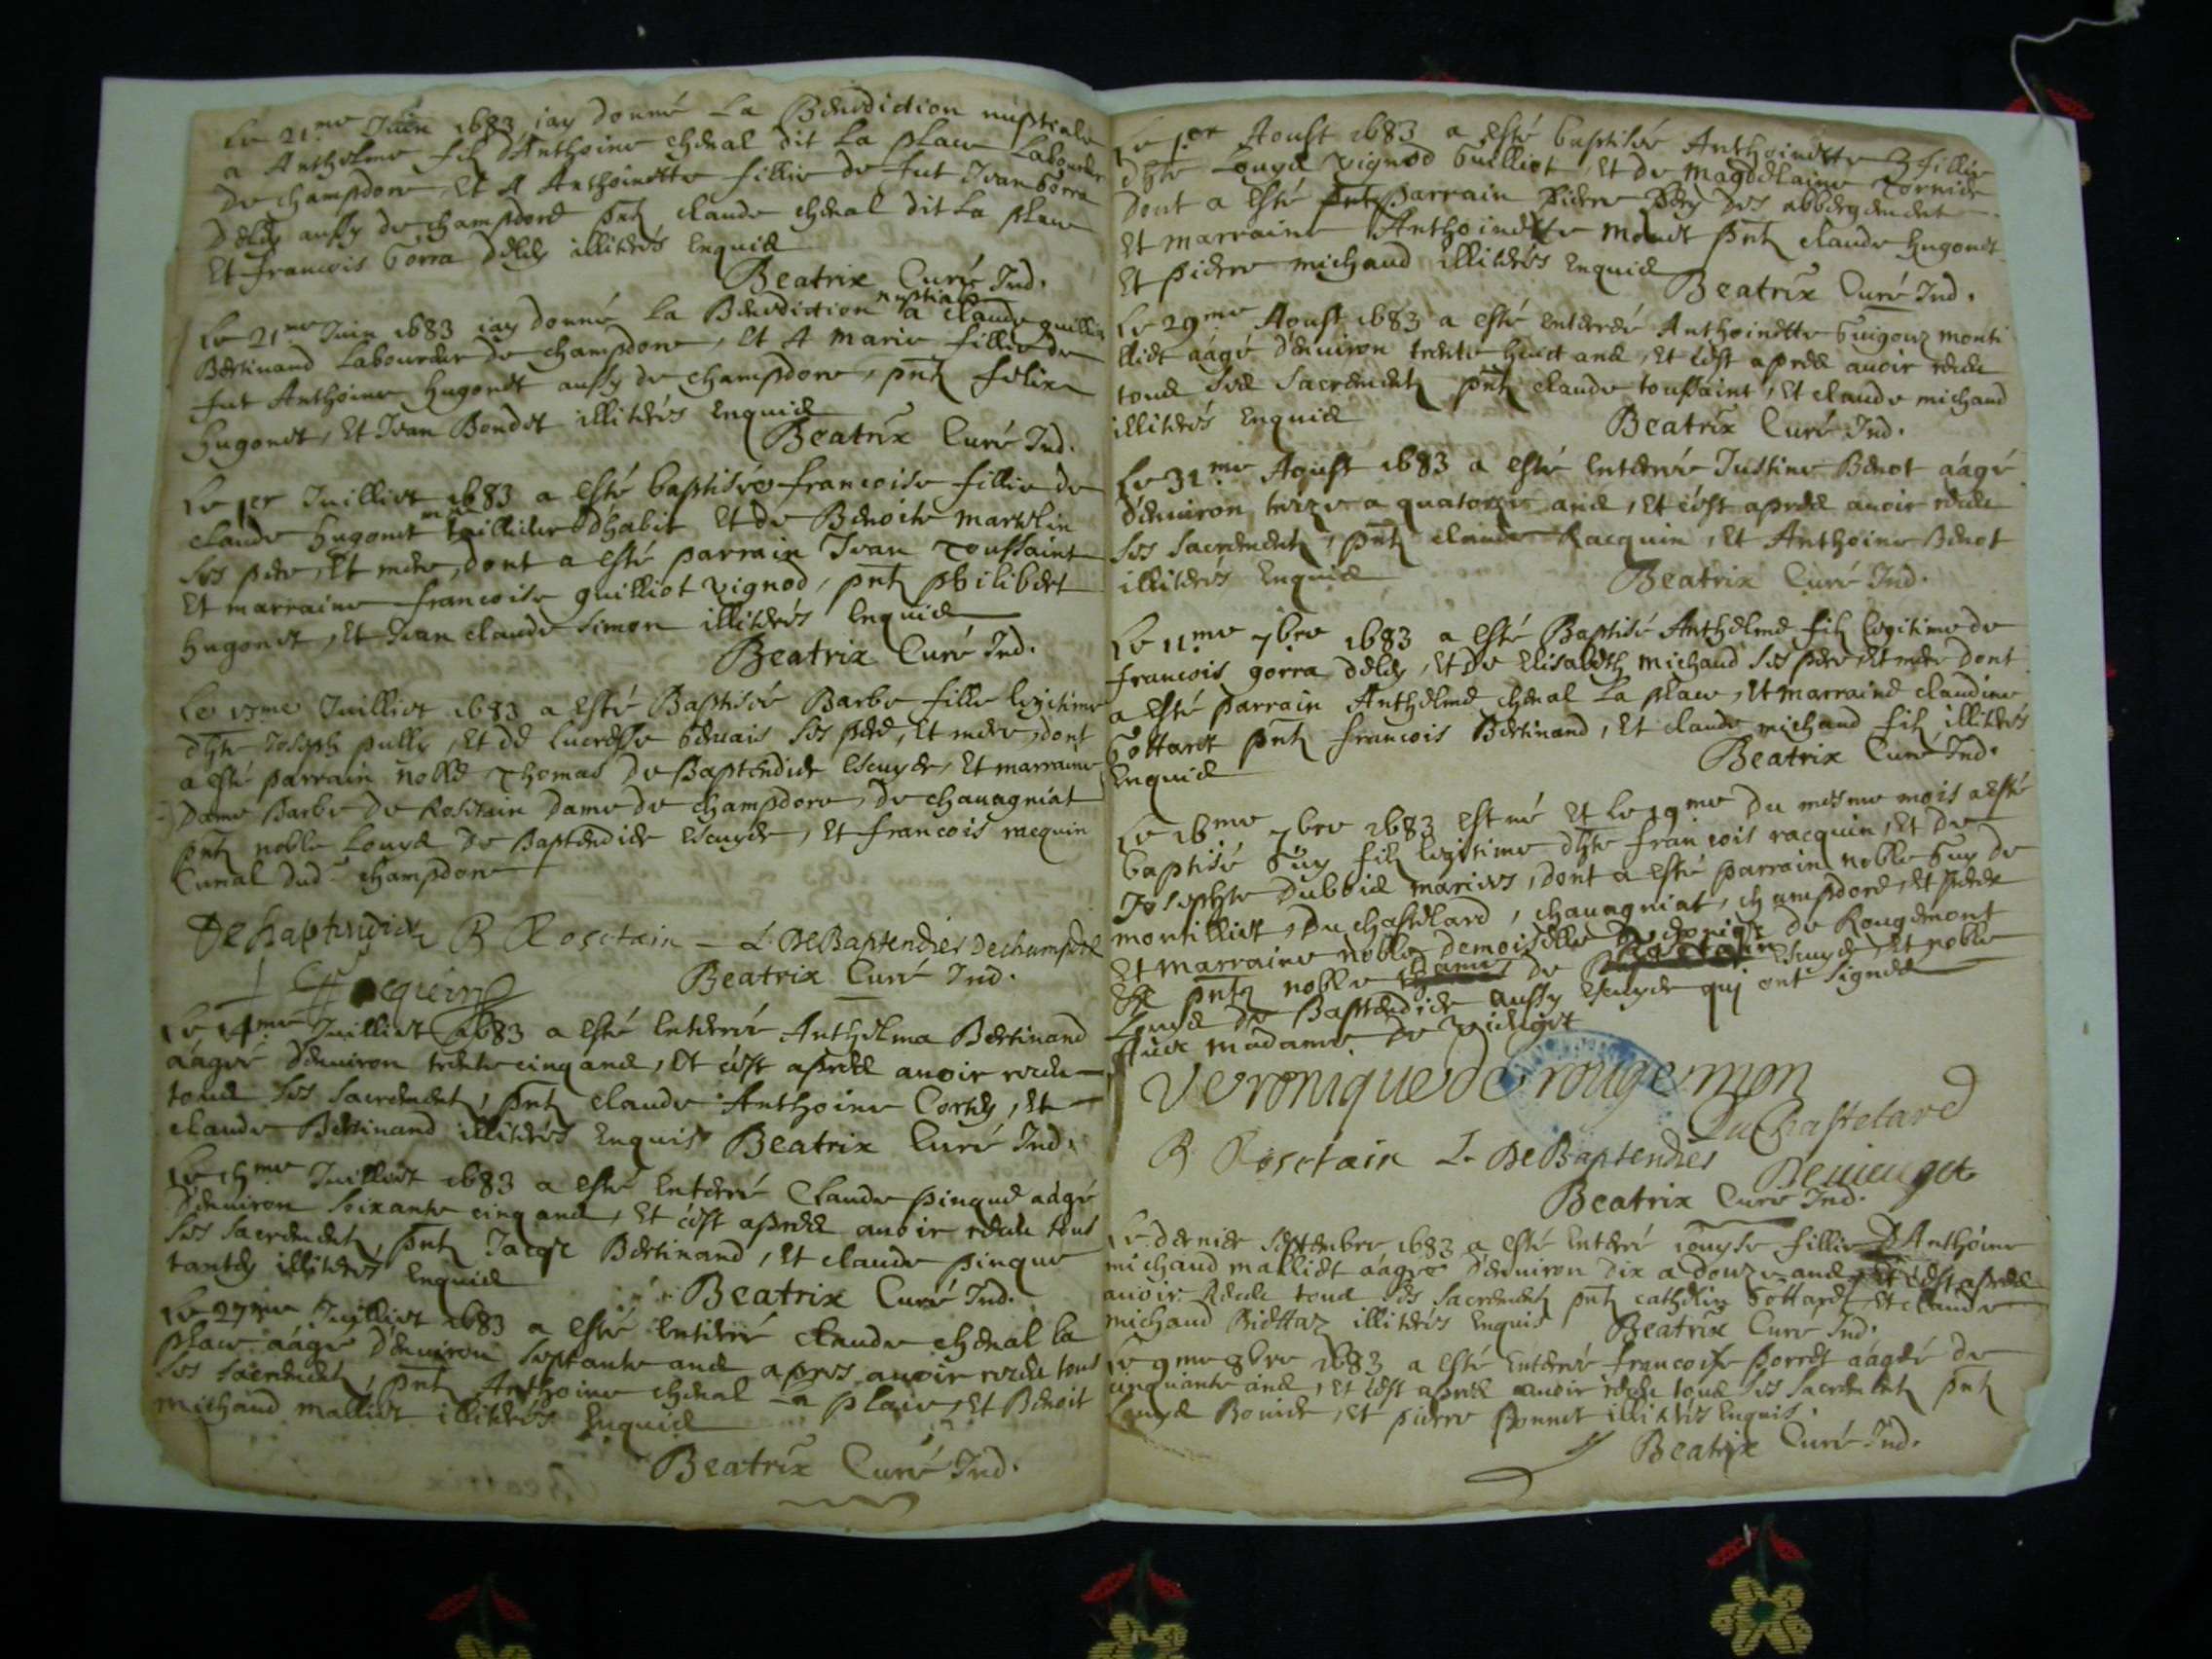 Le 21.me Juin 1683 iay donné La Benediction nuptiale
a Anthelme fils d'Anthoine cheval dit La place Laboureur
De champdore, Et A Anthoinette fillie de fut Jean Gorra
aussy de champdore pntz claude cheval dit La place
Et francois Gorra illiterés Enquis
Beatrix Curé Ind.
Le 21.me Juin 1683 iay donné La Benediction nuptiale a claude
Bertinand Laboureur de champdore, Et A Marie fillie de
fut Anthoine hugonet aussy de champdore, pntz felix
hugonet, Et Jean Bondet illiterés Enquis
Beatrix Curé Ind.
Le 1er Juilliet 1683 a esté baptisée francoise fillie de
claude hugonet tailleur d'habit Et de Benoite Marcelin
ses pere, Et mere, dont a esté parrain Jean Toussaint
Et marraine francoise guilliot vignod, pntz philibert
hugonet, Et Jean claude Simon illiterés Enquis
Beatrix Curé Ind.
Juilliet 1683 a esté Baptisée Barbe fille legitime
Joseph pully, Et de Lucresse ses pere, Et mere, dont
a esté parrain noble Thomas De Baptendier Escuyer, Et marraine
Dame Barbe De Rosetain Dame de champdore, de chavagniat
pntz noble Louys De Baptendier Escuyer, Et francois racquin
Curial dud champdore
De baptendier B Rosetain - L. DeBaptendier Dechampdore
Beatrix Curé Ind.
Racquin
Le 14.me Juilliet 1683 a esté Enterrée Anthelma Bertinand
áagée d'environ trente cinq ans, Et c'est apres avoir receu
tous ses sacrements, pntz claude Anthoine, Et
claude Bertinand illiterés Enquis Beatrix Curé Ind.
Juilliet 1683 a esté Enterré Claude pingue aágé
d'environ soixante cinq ans, Et c'est apres avoir receu tous
ses sacrements, pntz Jacqe Bertinand, Et claude pingue
illiterés Enquis
Beatrix Curé Ind.
Le 27me Juilliet 1683 a esté Enterré claude cheval la
place aágé d'environ septante ans apres avoir receu tous
ses sacrements, pntz Anthoine cheval La place, Et Benoit
michaud malliet illiterés Enquis
Beatrix Curé Ind.
Le 1er Aoust 1683 a esté baptisée Anthoinette fillie
Louys vignod Guilliot, Et de Magdelaine Tornier
Dont a esté parrain pierre
Et marraine Anthoinette Monet pntz claude hugonet
Et pierre michaud illiterés Enquis
Beatrix Curé Ind.
Le 29me Aoust 1683 a esté Enterrée Anthoinette Guigouz monti
lliet áagé d'environ trente huict ans, Et c'est apres avoir receu
tous ses sacrements pntz claude toussaint, Et claude michaud
illiterés Enquis
Beatrix Curé Ind.
Le 31.me Aoust 1683 a esté Enterrée Justine Benot áagé
d'environ treize a quatorze ans, Et c'est apres avoir receu
ses sacrements, pntz claude Racquin, Et Anthoine Benot
illiterés Enquis
Beatrix Curé Ind.
Le 11.me 7bre 1683 a esté Baptisé Anthelme filz legitime de
francois gorra, Et de Elisabeth michaud ses pere, Et mere dont
a esté parrain Anthelme cheval La place, Et marraine claudine
Gottaret pntz francois Bertinand, Et claude michaud filz illiterés
Enquis
Beatrix Curé Ind.
Le 16me 7bre 1683 est né Et Le 19me du mesme mois a esté
baptisé Guy filz legitime francois racquin, Et de
Josephte Dubbie mariés, dont a esté parrain noble Guy de
montilliet, Du chastelard, chavagniat, champdore, Et
Et marraine noble demoiselle de Rougemont
pntz noble de Escuyer, Et noble
Louys De Baptendier aussy Escuyer qui ont signés
Auec madame De
Veronique de rougemon
DuChastelard
B Rosetain L. DeBaptendier
Beatrix Curé Ind.
Le dernier septembre 1683 a esté Enterré Louyse fillie D'Anthoine
michaud malliet aágée d'environ dix a douze ans, Et c'est apres
avoir Receu tous ses sacrements pntz cathelin Gottaret, Et claude
michaud illiterés Enquis Beatrix Curé Ind.
Le 9me 8bre 1683 a esté Enterrée francoise porret aágée de
cinquante ans, Et c'est apres avoir receu tous ses sacrements pntz
Louys Bonier, Et pierre Bonnet illiterés Enquis.
Beatrix Curé Ind.